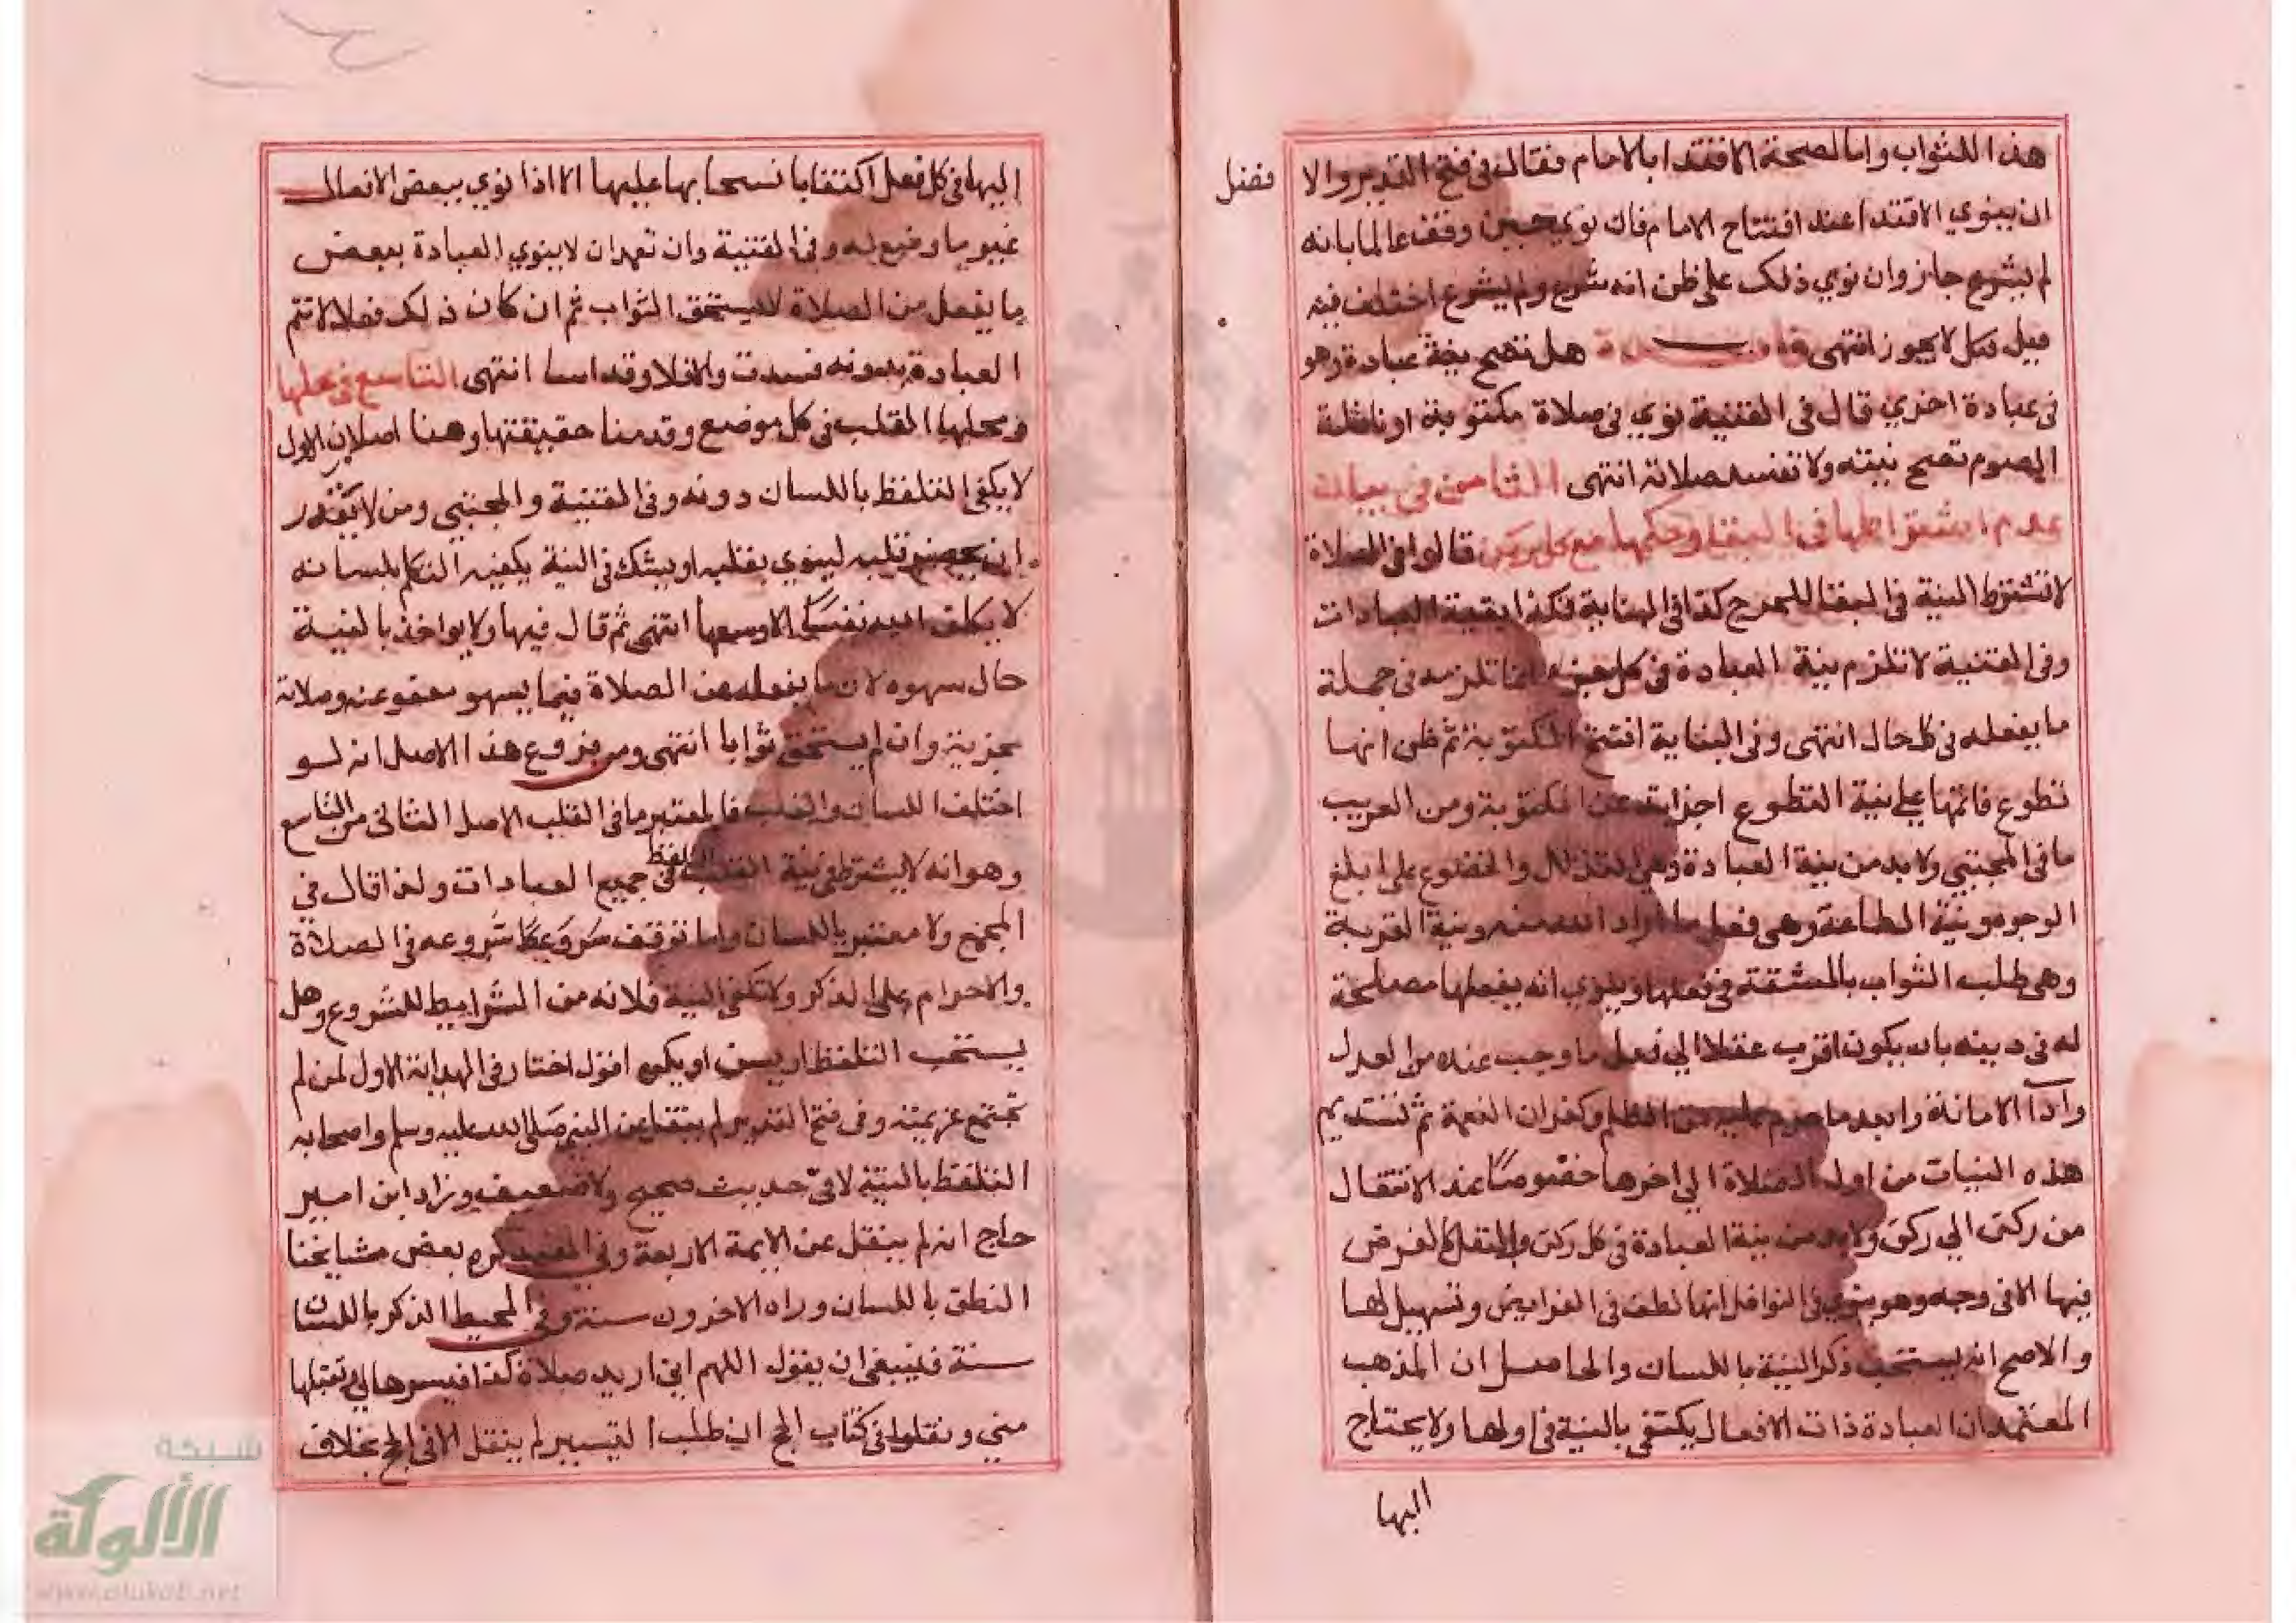 هذا للثواب واما لصحة الاقتدا بالامام فقال في فتح القدير والا
فضل
ان ينوي الاقتدا عند افتتاح الامام فان نوي حين وقف عالما بانه
لم يشرع جاز وان نوي ذلك علي ظن انه شرع ولم يشرع اختلف فيه
قيل قيل لا يجوز انتهى هل تصح نية عبادة وهو
في عبادة اخري قال في القنية نوي في صلاة مكتوبة او نافلة
الصوم تصح نيته ولا تفسد صلاته انتهى الثامن في بيان
عدم اشتراطها في البقا وحكمها مع كل ركن قالوا في الصلاة
لا تشترط النية في البقا للحرج كذا في النهاية فكذا بقية العبادات
وفي القنية لا تلزم نية العبادة في كل جزء انما تلزمه في جملة
ما يفعله في كل حال انتهى وفي البناية افتتح المكتوبة ثم ظن انها
تطوع فاتمها علي نية التطوع اجزاته عن المكتوبة ومن الغريب
ما في المجتبي ولا بد من نية العبادة وهي التذلل والخضوع علي ابلغ
الوجوه ونية الطاعة وهي فعل ما اراد الله منه ونية القربة
وهي طلب الثواب بالمشقة في فعلها وينوي انه يفعلها مصلحة
له في دينه بان يكون اقرب عقلا الي فعل ما وجب عنده من العدل
وادآ الامانة وابعد ما حرم عليه من الظلم وكفران النعمة ثم تستديم
هذه النيات من اول الصلاة الي اخرها خصوصًا عند الانتقال
من ركن الي ركن ولا بد من نية العبادة في كل ركن والنفل كالفرض
فيها الا في وجه وهو ينوي في النوافل انها لطف في الفرايض وتسهيل لها
والاصح انه يستحب ذكر النية باللسان والحاصل ان المذهب
المعتمد ان العبادة ذات الافعال يكتفي بالنية في اولها ولا يحتاج
اليها
اليها في كل فعل اكتفا بانسحابها عليها الا اذا نوي ببعض الافعال
غير ما وضع له وفي القنية وان تعمد ان لا ينوي العبادة ببعض
ما يفعل من الصلاة لا يستحق الثواب ثم ان كان ذلك فعلا لا تتم
العبادة بدونه فسدت والا فلا وقد اسا انتهى التاسع في محلها
ومحلها القلب في كل موضع وقدمنا حقيقتها وهنا اصلان الاول
لا يكفي التلفظ باللسان دونه وفي القنية والمجتبي ومن لا يقدر
ان يحضر قلبه لينوي بقلبه او يشك في النية يكفيه التكلم بلسانه
لا يكلف الله نفسًا الا وسعها انتهى ثم قال فيها ولا يواخذ بالنية
حال سهوه لان ما يفعله من الصلاة فيما يسهو معفو عنه وصلاته
مجزية وان لم يستحق ثوابا انتهى ومن فروع هذا الاصل انه لو
اختلف اللسان والقلب فالمعتبر ما في القلب الاصل الثاني من التاسع
وهو انه لا يشترط في نية القلب التلفظ في جميع العبادات ولذا قال في
المجمع ولا معتبر باللسان واما توقف شروعه في الصلاة
والاحرام علي الذكر ولا تكفي النية فلانه من الشرايط للشروع وهل
يستحب التلفظ او يسن او يكره اقول اختار في الهداية الاول لمن لم
تجتمع عزيمته وفي فتح القدير لم ينقل عن النبي صلي الله عليه وسلم واصحابه
التلفظ بالنية لا في حديث صحيح ولا ضعيف وزاد ابن امير
حاج انه لم ينقل عن الايمة الاربعة وفي المفيد كره بعض مشايخنا
النطق باللسان وراه الاخرون سنة وفي المحيط الذكر باللسان
سنة فينبغي ان يقول اللهم اني اريد صلاة كذا فيسرها لي وتقبلها
مني ونقلوا في كتاب الحج ان طلب التيسير لم ينقل الا في الحج بخلاف
شبكة
الألوكة
www.alukah.net